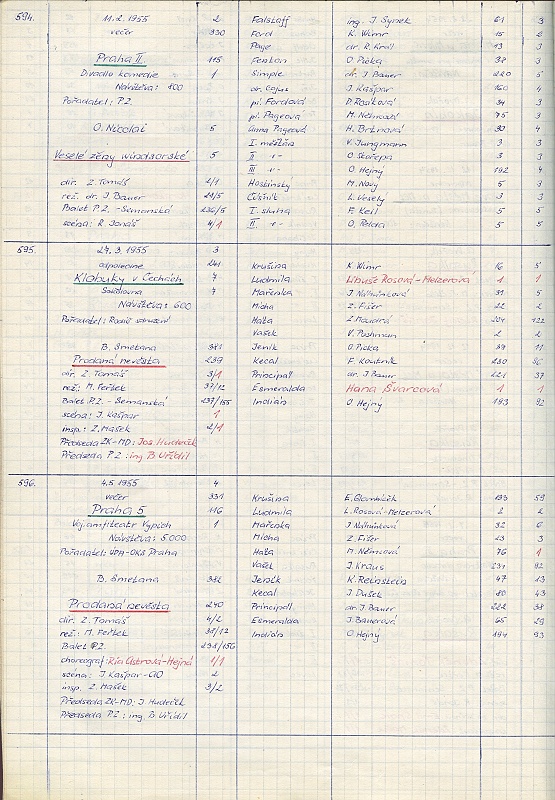 594. 11.2.1955 2 Falstaff ing. J. Synek 61 3
večer 330 Ford K. Wimr 15 2
Page dr. R. Král 13 3
Praha II. 115 Fenton O. Pička 38 3
Divadlo komedie 1 Simple dr. J. Bauer 220 5
Návštěva: 400 dr. Cajus J. Kašpar 160 4
Pořadatel: P.Z. pí. Fordová D. Rosíková 34 3
pí. Pageová M. Němcová 75 3
O. Nicolai 5 Anna Pageová H. Brtnová 30 4
I. měšťan V. Jungmann 3 3
Veselé ženy windsorské 5 II. -"- O. Skořepa 3 3
III. -"- O. Hejný 192 4
dir. Z. Tomáš 2/1 Hostinský M. Nový 5 3
rež. dr. J. Bauer 29/5 Číšník L. Veselý 3 3
Balet P.Z. - Šemanská 236/5 I. sluha F. Keil 5 5
scéna: R. Jonáš 4/1 II. -"- O. Petera 5 5
595. 27.3.1955 3
odpoledne 241 Krušina K. Wimr 16 5
Klobuky v Čechách 7 Ludmila Libuše Rosová-Melzerová 1 1
Sokolovna 7 Mařenka J. Nalhůnková 31 5
Návštěva: 600 Mícha Z. Fišer 22 2
Pořadatel: Rodič. sdružení Háta Z. Moudrá 204 122
Vašek V. Puchman 2 2
B. Smetana 381 Jeník O. Pička 39 11
Prodaná nevěsta 239 Kecal F. Koutník 230 86
dir. Z. Tomáš 3/1 Principál dr. J. Bauer 221 37
rež.: M. Feřtek 37/12 Esmeralda Hana Švarcová 1 1
Balet P.Z. - Šemanská 237/155 Indián O. Hejný 193 92
scéna: J. Kašpar 1
insp. Z. Mašek 2/1
Předseda ZK-MD: Jos. Hudeček
Předseda P.Z.: ing B. Uřídil
596. 4.5.1955 4
večer 331 Krušina E. 193 59
Praha 5 116 Ludmila L. Rosová-Melzerová 2 2
Voj. amfiteatr Vypich 1 Mařenka J. Nalhůnková 32 6
Návštěva: 5.000 Mícha Z. Fišer 23 3
Pořadatel: ÚDA-OKS Praha Háta M. Němcová 76 1
Vašek J. Kraus 231 82
B. Smetana 382 Jeník K. Reinstein 47 13
Kecal J. Dušek 80 43
Prodaná nevěsta 240 Principál dr. J. Bauer 222 38
dir. Z. Tomáš 4/2 Esmeralda J. Bauerová 65 29
rež.: M. Feřtek 38/12 Indián O. Hejný 194 93
Balet P.Z. 238/156
choreograf: Ria Astrová-Hejná 1/1
scéna: J. Kašpar-ČIO 2
insp. Z. Mašek 3/2
Předseda ZK-MD: J. Hudeček
Předseda P.Z.: ing B. Uřídil